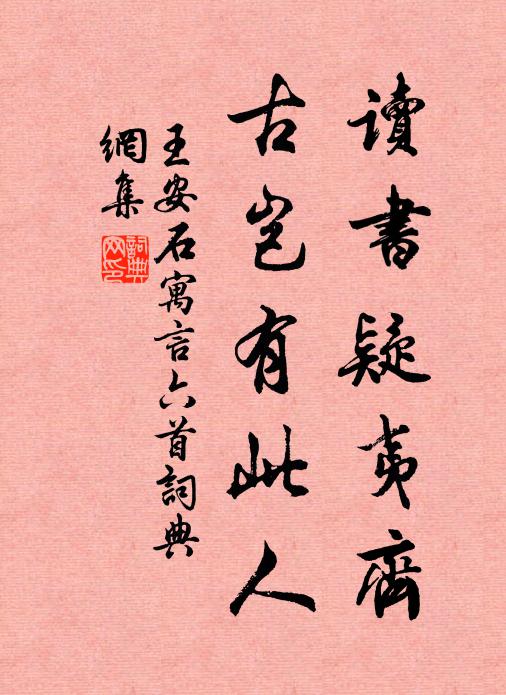 讀書疑夷齊
古豈有此人
王安石寓言六首詞典
網集
詞典網印